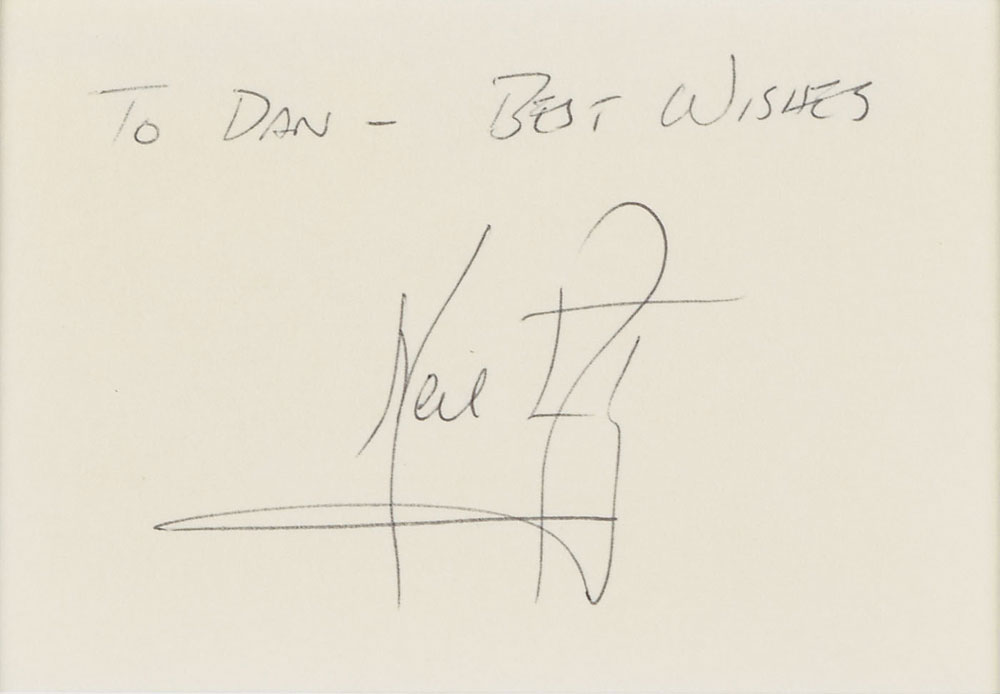 TO DAN – BEST WISHES
Neil